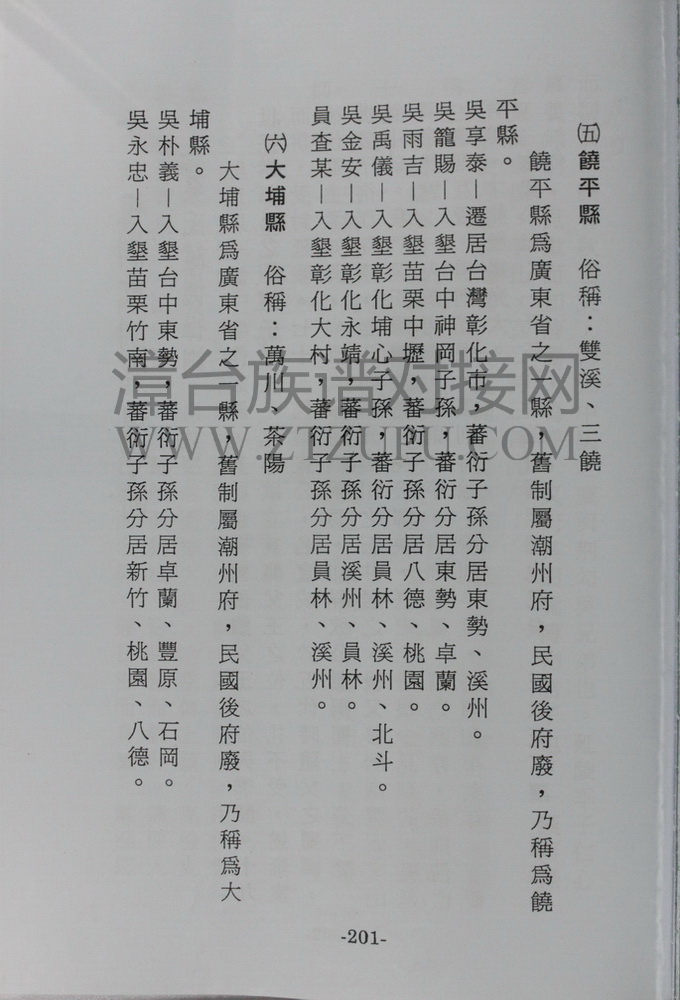 ㈤饒平縣　俗稱：雙溪、三饒
饒平縣爲廣東省之一縣，舊制屬潮州府，民國後府廢，乃稱爲饒
平縣。
吳享泰—遷居台灣彰化市，蕃衍子孫分居東勢、溪州。
吳籠賜—入墾台中神岡子孫，蕃衍分居東勢、卓蘭。
吳雨吉—入墾苗栗中壢，蕃衍子孫分居八德、桃園。
吳禹儀—入墾彰化埔心子孫，蕃衍分居員林、溪州、北斗。
吳金安—入墾彰化永靖，蕃衍子孫分居溪州、員林。
員查某—入墾彰化大村，蕃衍子孫分居員林、溪州。
㈥大埔縣　俗稱：萬川、茶陽
大埔縣爲廣東省之一縣，舊制屬潮州府，民國後府廢，乃稱爲大
埔縣。
吳朴義—入墾台中東勢，蕃衍子孫分居卓蘭、豐原、石岡。
吳永忠—入墾苗栗竹南，蕃衍子孫分居新竹、桃園、八德。
-201-
漳台族谱对接网
WWW.ZTZUPU.COM